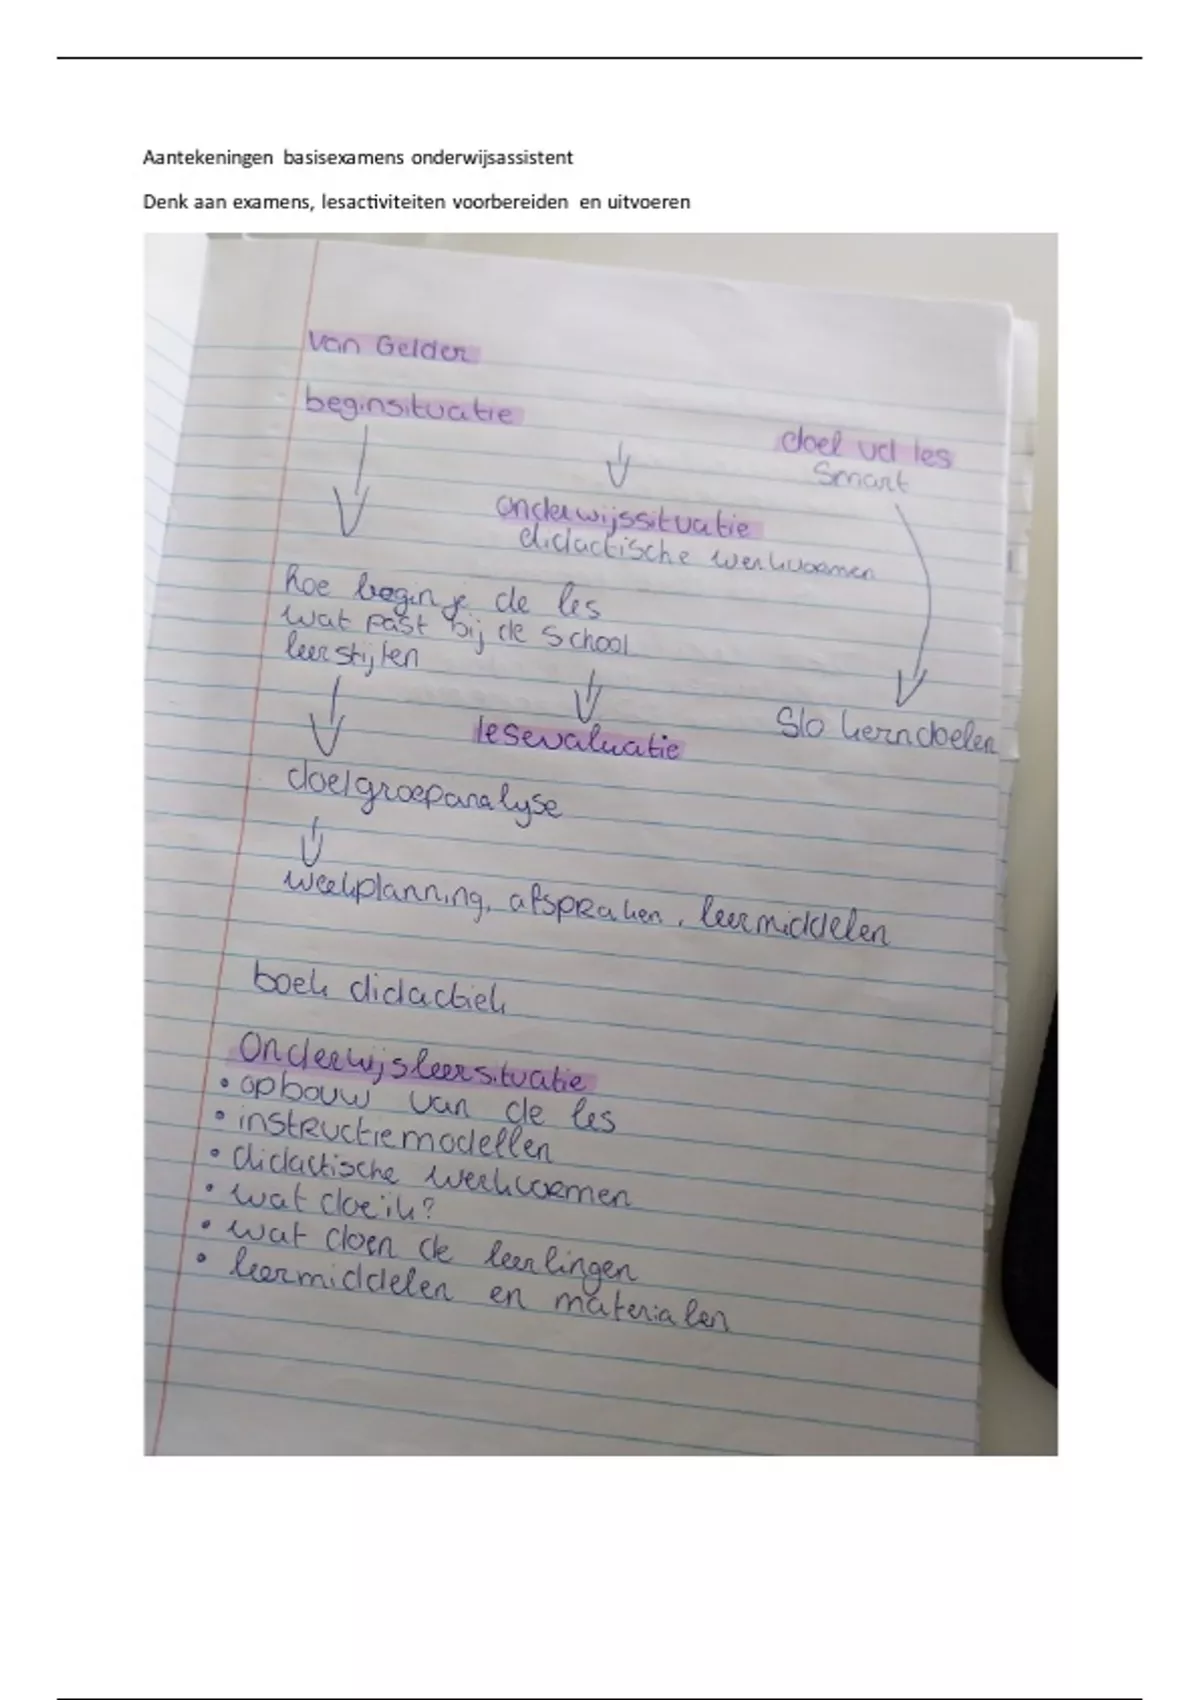 Aantekeningen basisexamens onderwijsassistent
Denk aan examens, lesactiviteiten voorbereiden en uitvoeren
Van Gelder
beginsituatie
doel vd les
Smart
onderwijssituatie
didactische werkvormen
hoe begin je de les
wat past bij de school
leerstijlen
lesevaluatie
Slo kerndoelen
doelgroepanalyse
weekplanning, afspraken, leermiddelen
boek didactiek
Onderwijsleersituatie
• opbouw van de les
• instructiemodellen
• didactische werkvormen
• wat doe ik?
• wat doen de leerlingen
• leermiddelen en materialen